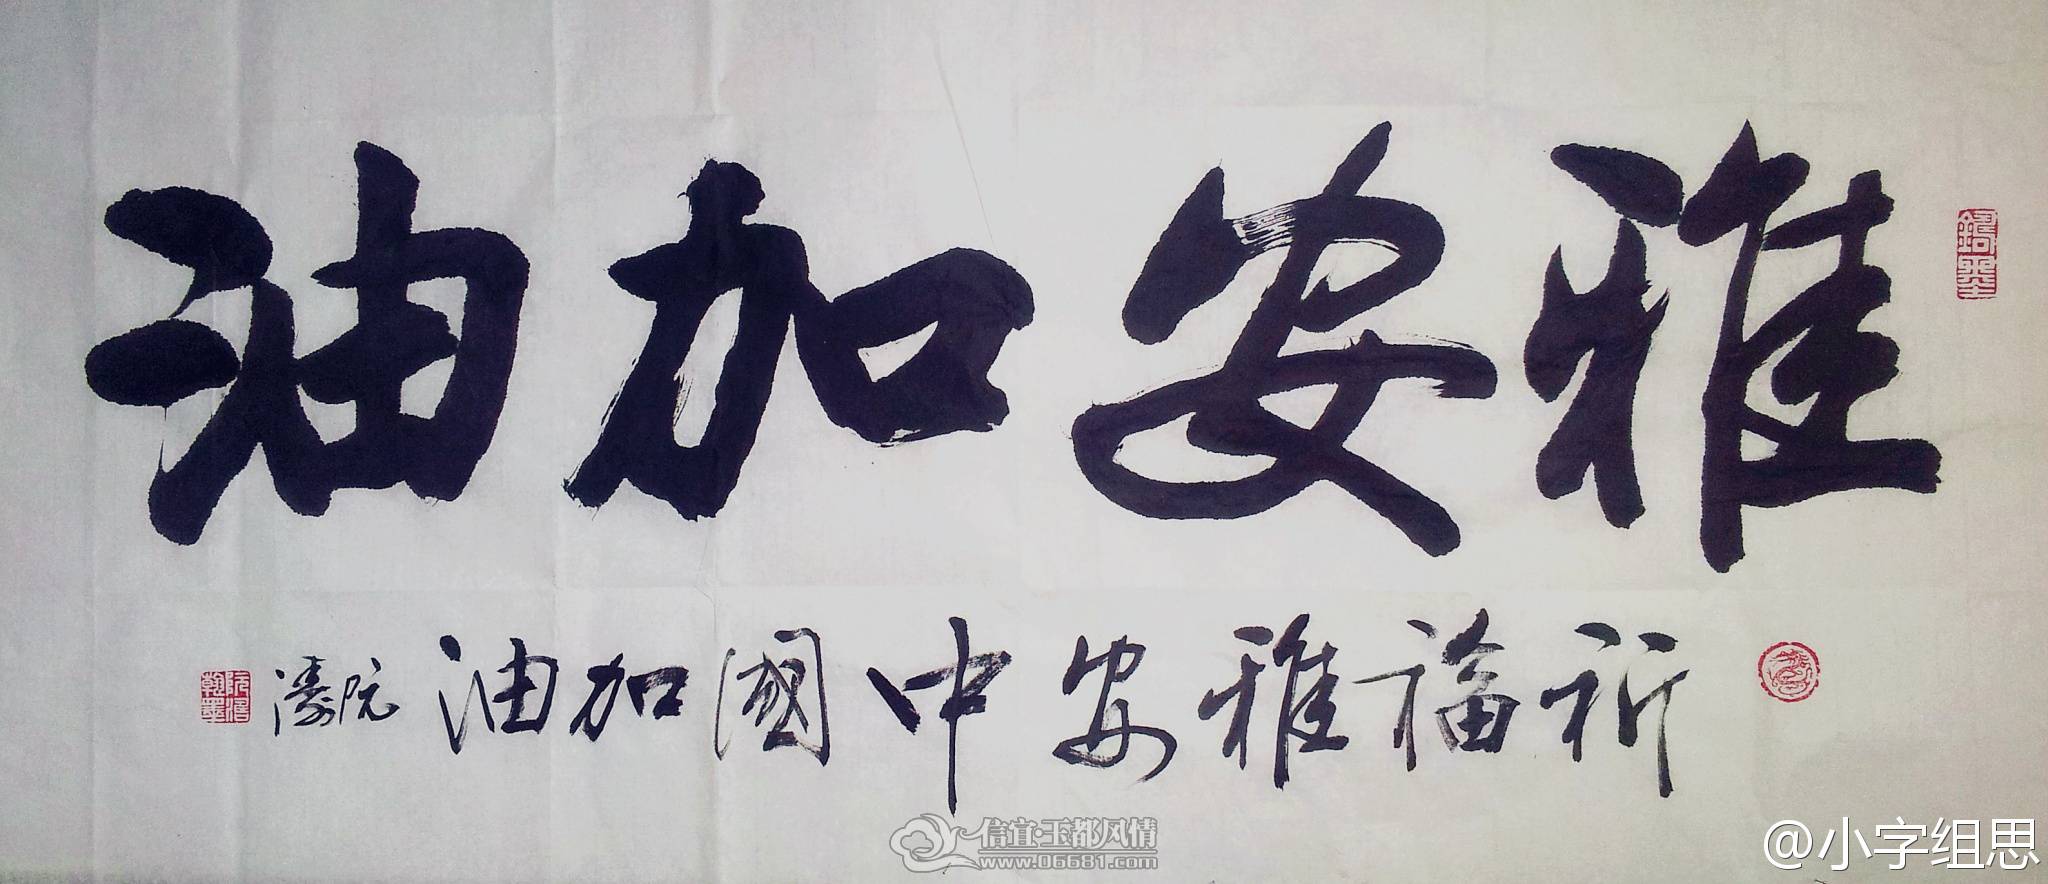 雅安加油
祈福雅安中國加油 阮濤
信宜·玉都风情
www.06681.com
@小字组思